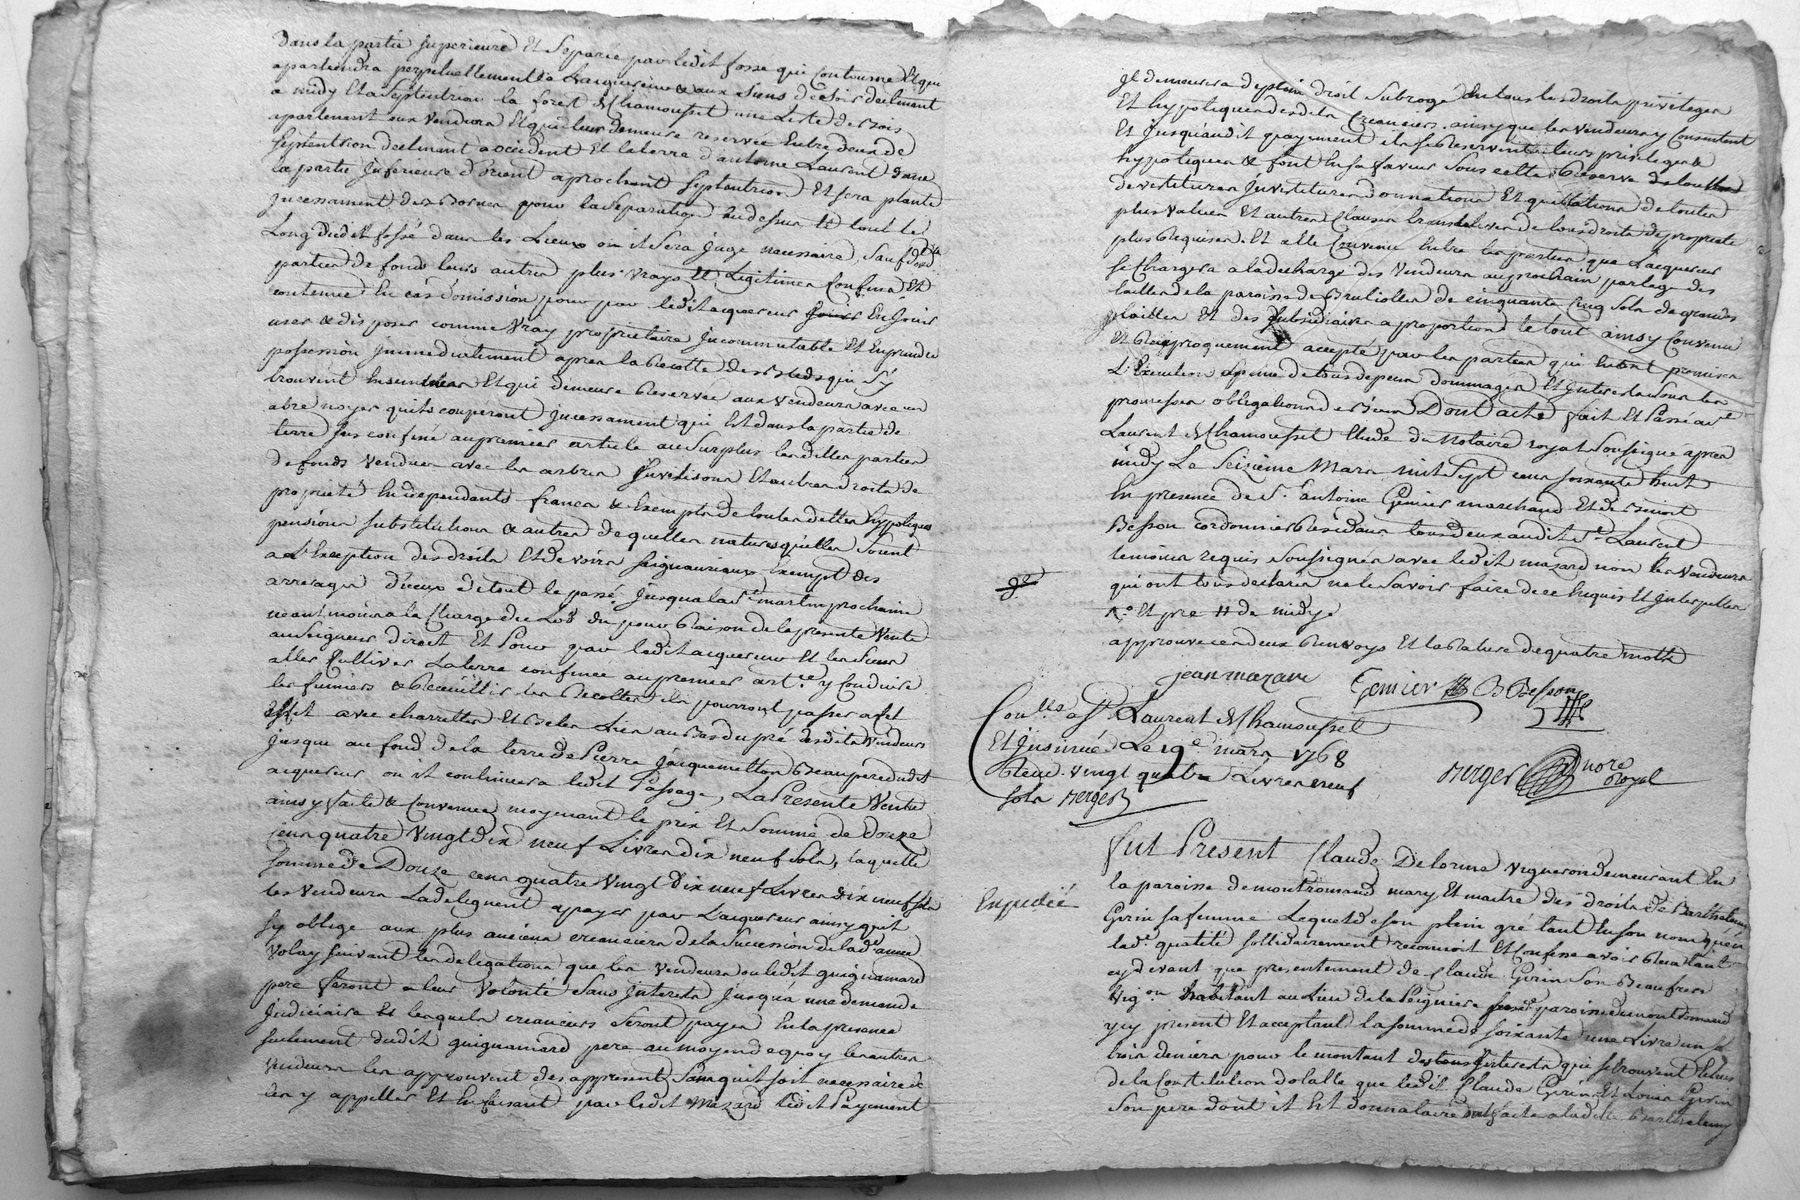 dans la partie superieure Et Separée par ledit fossé qui Contourne Et qui
apartiendra perpetuellement a Lacquereur & aux siens de soir declinant
a midy Et a Septentrion la forest de Chamousset une Liste de Bois
apartenant aux Vendeurs Et qui leur demeure reservée Entre deux de
Septentrion declinant a occident Et la terre d'antoine Laurent dans
la partie Inferieure d'orient aprochant Septentrion Et sera planté
Incessament des Bornes pour la Separation du dessus le tout le
Long dudit fossé dans les Lieux où il Sera jugé necessaire, Sauf
parties de fonds leurs autres plus vrays Et Legitimes Confins Et
contenue En cas d'omission pour par ledit acquereur En Jouir
user & disposer comme Vray proprietaire Incommutable Et En prendre
possession Immediatement apres la Recolte des Bleds qui s'y
trouvent Ensemencés Et qui demeure Reservée aux Vendeurs avec un
abre noyer qu'ils couperont Incessament qui Est dans la partie de
terre Jus confiné au premier article au Surplus les dittes parties
de fonds Vendues avec les arbres Inversions Et autres droits de
proprieté Independants francs & Exempts de toutes dettes hypoteques
pensions substitutions & autres de quelles natures qu'elles Soient
a L'Exception des droits Et devoirs Seigneuriaux Exempt des
arrerages d'iceux de tout le passé Jusqua la St martin prochaine
neantmoins a la Charge du Lod dû pour Raison de la presente Vente
au Seigneur direct Et Pour par ledit acquereur Et les Siens
aller Cultiver La terre confinée au premier art.le y Conduire
les fumiers & Receuillir les Recoltes ils pourront passer a cet
Effet avec charrettes Et Betes Lien au Bas du pré desdits Vendeurs
Jusque au fond de la terre de Pierre Jacquemetton Beaupere dudit
acquereur ou il continuera ledit Passage, La Presente Vente
ainsy faite & Convenue moyenant le prix Et Somme de Douze
Cens quatre Vingt Dix neuf Livres dix neuf sols, laquelle
somme de Douze cens quatre Vingt Dix neuf Livres dix neuf sols
les Vendeurs La deleguent a payer par Lacquereur ainsy qu'il
s'y oblige aux plus anciens creanciers de la Succession de lade anne
Volay suivant les delegations que les Vendeurs ou ledit guignamard
pere feront a leur Volonté Sans Interets Jusqu'a une demande
Judiciaire Et lesquels creanciers Seront payes En la presence
seulement dudit guignamard pere au moyen de quoy les autres
Vendeurs les approuvent des apresent Sans quil soit necessaire de
les y appeller Et En faisant par ledit Mazard ledit Payement
Il demeurera de plein droit Subrogé En tous les droits privileges
Et hypoteques desdits Creanciers, ainsy que les Vendeurs y Consentent
Et Jusqu'audit payement ils se Reservent leurs privileges &
hypoteques & font En sa faveur Sous cette Reserve
devestitures Investitures donnations Et quittations de toutes
plus Values Et autres Clauses translatives de tous droits de proprieté
plus Requises, Et a Eté Convenu Entre les parties que Lacquereur
se Chargera a la decharge des Vendeurs au prochain partage des
tailles de la paroisse de Brulliolles de cinquante Cinq Sols de grandes
tailles Et des Subsidiaires a proportion le tout ainsy Convenu
Et Reciproquement accepté par les parties qui En ont promis
L'Execution a peine de tous depens dommages Et Interets sous les
promesses obligations de Biens Dont acte fait Et Passé a St
Laurent de Chamousset Etude du Notaire royal Soussigné apres
midy Le Seizieme Mars mil Sept cens soixante huit
En presence de Sr. antoine Genier marchand Et de Benoit
Besson cordonnier Residans tous deux audit St. Laurent
temoins requis Soussignés avec ledit mazard non les Vendeurs
qui ont tous declarés ne le Savoir faire de ce Enquis Et Interpellés
approuve ces deux Renvoys Et la Rature de quatre mots
jean mazard Genier B Besson
Conlé a St. Laurent de Chamousset
Et Insinué Le 19e mars 1768
Reçu vingt quatre Livres neuf
sols Berger
Berger nore Royal
Fut Present Claude Delorme Vigneron demeurant En
la paroisse de montromand mary Et maitre des droits de Barthelemy
Expedié
Girin sa femme Lequel de son plein gré tant En son nom qu'en
lade. qualité sollidairement reconnoit Et Confesse avoir Reçu tant
cy devant que presentement de Claude Girin Son Beaufrere
Vigon. habitant au Lieu de la Peigniere paroisse de montromand
y cy present Et acceptant la somme de soixante une Livre un s
trois deniers pour le montant des tous Interets qui se trouvent Echus
de la Constitution dotalle que ledit Claude Girin Et Louis Girin
Son pere dont il Est donnataire ont faite a ladite Barthelemy